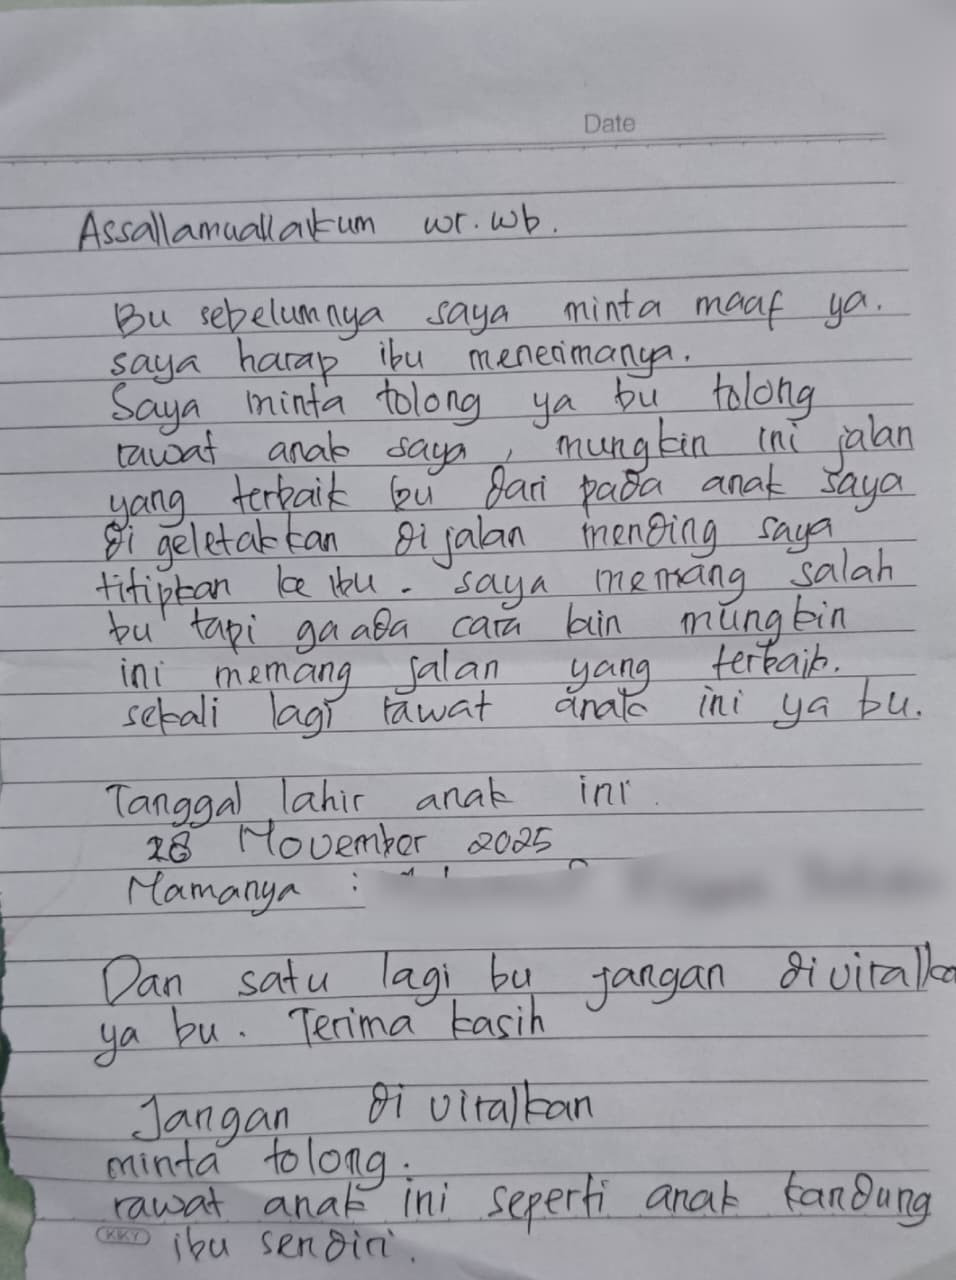 Date
Assallamuallaikum wr. wb.
Bu sebelumnya saya minta maaf ya.
saya harap ibu menerimanya.
Saya minta tolong ya bu tolong
rawat anak saya, mungkin ini jalan
yang terbaik bu dari pada anak saya
di geletakkan di jalan mending saya
titipkan ke ibu. saya memang salah
bu tapi ga ada cara lain mungkin
ini memang jalan yang terbaik.
sekali lagi rawat anak ini ya bu.
Tanggal lahir anak ini
28 November 2025
Namanya :
Dan satu lagi bu jangan diviralka
ya bu. Terima kasih
Jangan di viralkan
minta tolong.
rawat anak ini seperti anak kandung
KKY ibu sendiri.